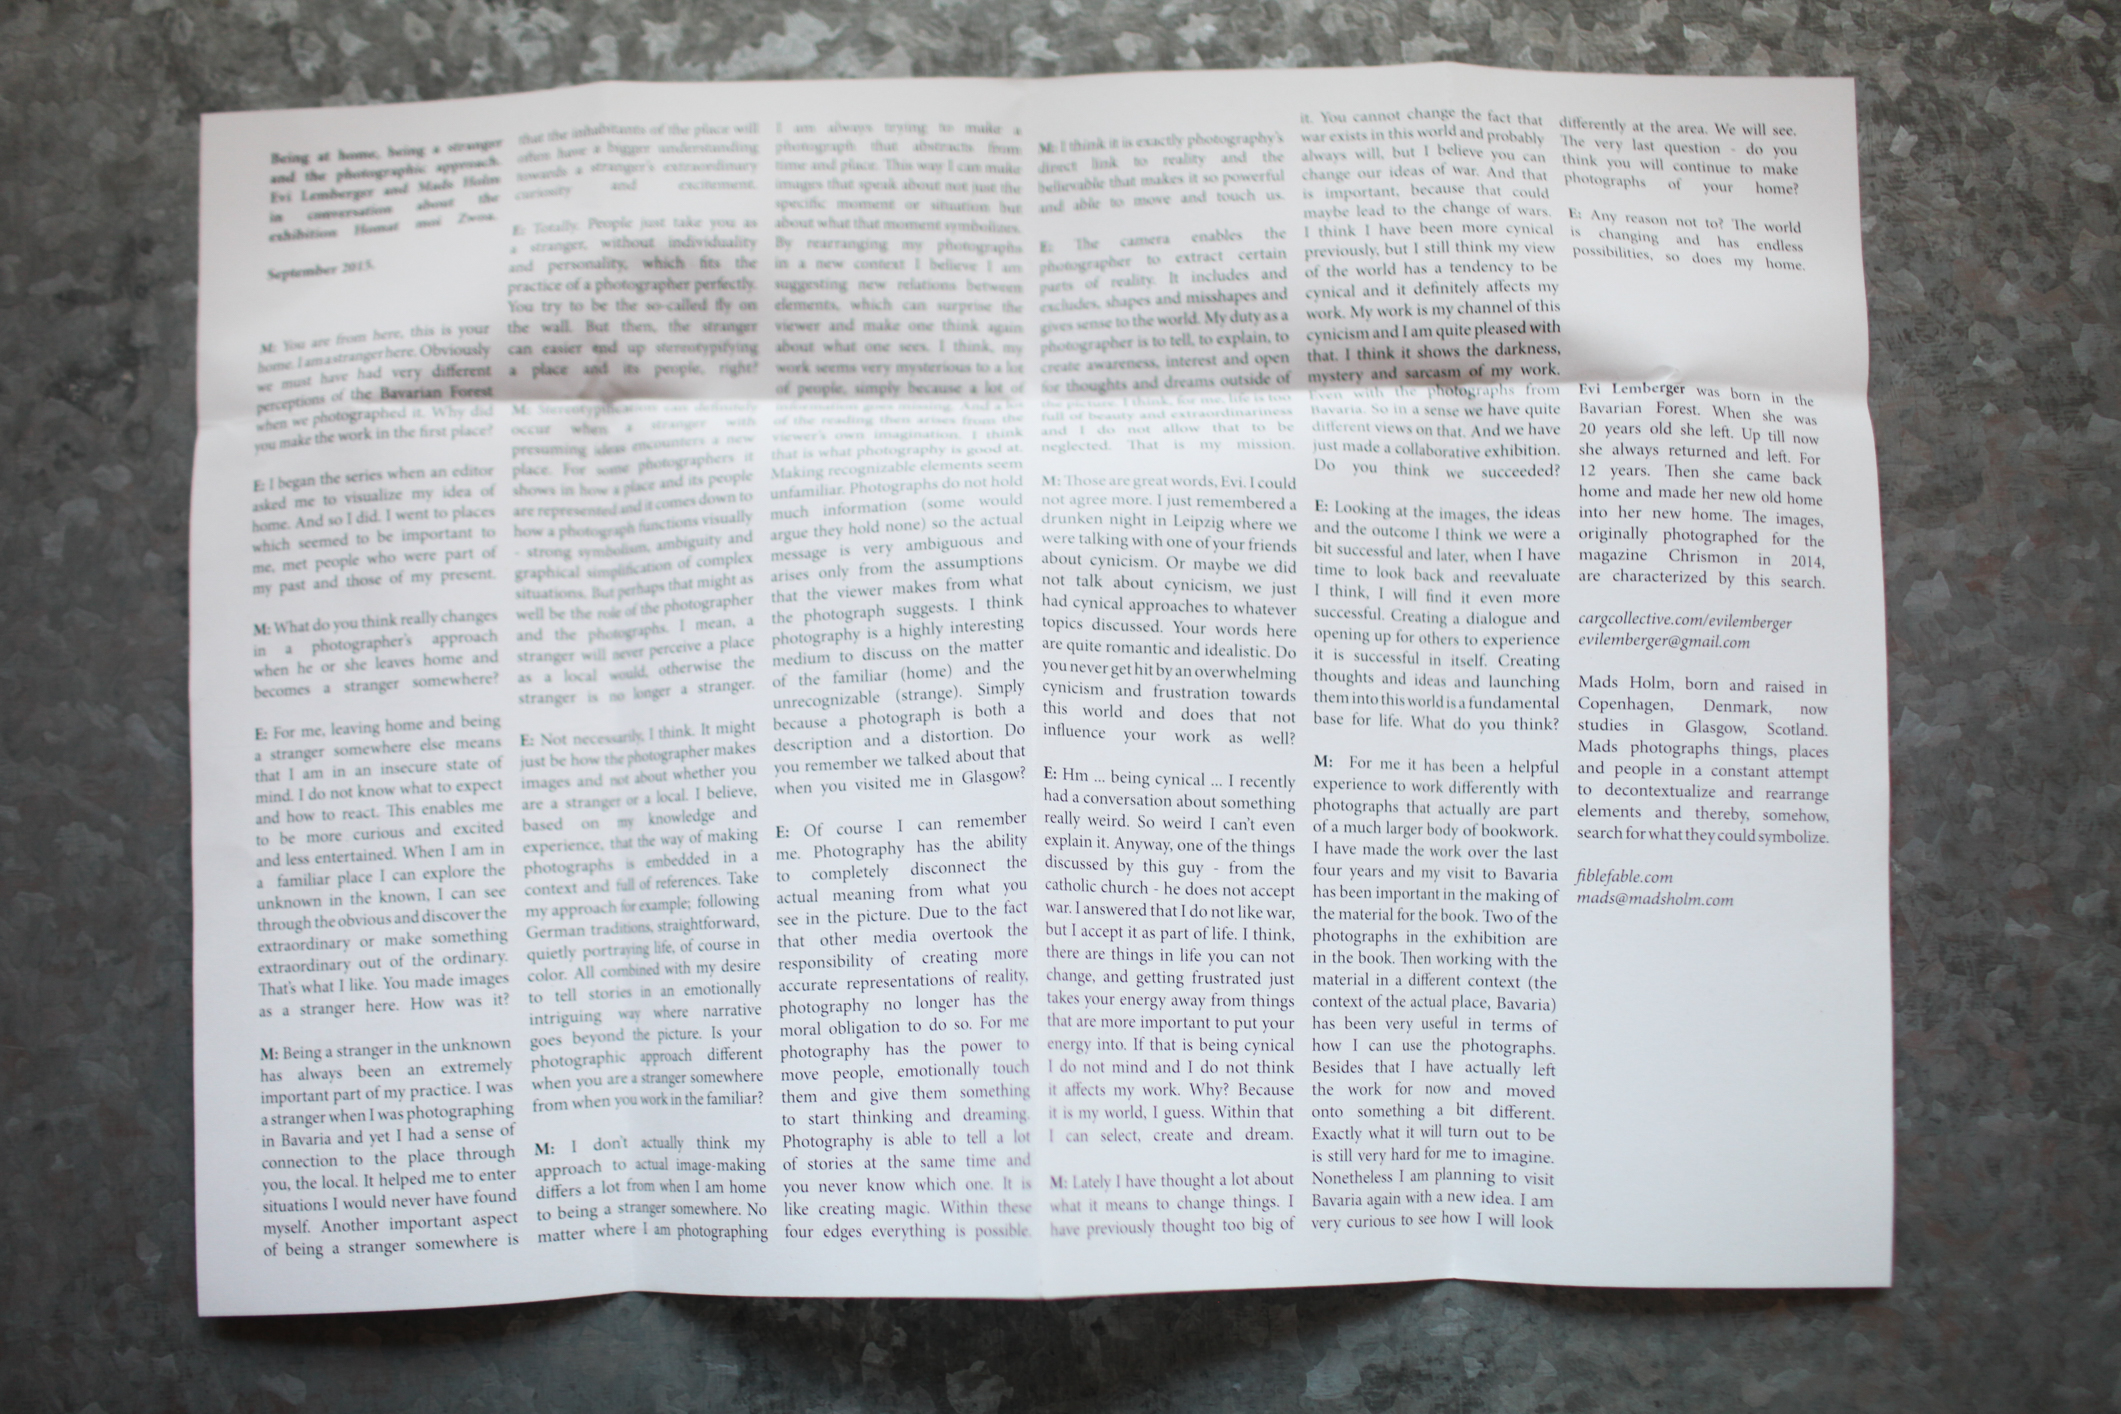 Being at home, being a stranger
and the photographic approach.
Evi Lemberger and Mads Holm
in conversation about the
exhibition Homat moi Zwoa.
September 2015.
M: You are from here, this is your
home. I am a stranger here. Obviously
we must have had very different
perceptions of the Bavarian Forest
when we photographed it. Why did
you make the work in the first place?
E: I began the series when an editor
asked me to visualize my idea of
home. And so I did. I went to places
which seemed to be important to
me, met people who were part of
my past and those of my present.
M: What do you think really changes
in a photographer's approach
when he or she leaves home and
becomes a stranger somewhere?
E: For me, leaving home and being
a stranger somewhere else means
that I am in an insecure state of
mind. I do not know what to expect
and how to react. This enables me
to be more curious and excited
and less entertained. When I am in
a familiar place I can explore the
unknown in the known, I can see
through the obvious and discover the
extraordinary or make something
extraordinary out of the ordinary.
That's what I like. You made images
as a stranger here. How was it?
M: Being a stranger in the unknown
has always been an extremely
important part of my practice. I was
a stranger when I was photographing
in Bavaria and yet I had a sense of
connection to the place through
you, the local. It helped me to enter
situations I would never have found
myself. Another important aspect
of being a stranger somewhere is
that the inhabitants of the place will
often have a bigger understanding
towards a stranger's extraordinary
curiosity and excitement.
E: Totally. People just take you as
a stranger, without individuality
and personality, which fits the
practice of a photographer perfectly.
You try to be the so-called fly on
the wall. But then, the stranger
can easier end up stereotypifying
a place and its people, right?
M: Stereotypification can definitely
occur when a stranger with
presuming ideas encounters a new
place. For some photographers it
shows in how a place and its people
are represented and it comes down to
how a photograph functions visually
- strong symbolism, ambiguity and
graphical simplification of complex
situations. But perhaps that might as
well be the role of the photographer
and the photographs. I mean, a
stranger will never perceive a place
as a local would, otherwise the
stranger is no longer a stranger.
E: Not necessarily, I think. It might
just be how the photographer makes
images and not about whether you
are a stranger or a local. I believe,
based on my knowledge and
experience, that the way of making
photographs is embedded in a
context and full of references. Take
my approach for example; following
German traditions, straightforward,
quietly portraying life, of course in
color. All combined with my desire
to tell stories in an emotionally
intriguing way where narrative
goes beyond the picture. Is your
photographic approach different
when you are a stranger somewhere
from when you work in the familiar?
M: I don't actually think my
approach to actual image-making
differs a lot from when I am home
to being a stranger somewhere. No
matter where I am photographing
I am always trying to make a
photograph that abstracts from
time and place. This way I can make
images that speak about not just the
specific moment or situation but
about what that moment symbolizes.
By rearranging my photographs
in a new context I believe I am
suggesting new relations between
elements, which can surprise the
viewer and make one think again
about what one sees. I think, my
work seems very mysterious to a lot
of people, simply because a lot of
information goes missing. And a lot
of the reading then arises from the
viewer's own imagination. I think
that is what photography is good at.
Making recognizable elements seem
unfamiliar. Photographs do not hold
much information (some would
argue they hold none) so the actual
message is very ambiguous and
arises only from the assumptions
that the viewer makes from what
the photograph suggests. I think
photography is a highly interesting
medium to discuss on the matter
of the familiar (home) and the
unrecognizable (strange). Simply
because a photograph is both a
description and a distortion. Do
you remember we talked about that
when you visited me in Glasgow?
E: Of course I can remember
me. Photography has the ability
to completely disconnect the
actual meaning from what you
see in the picture. Due to the fact
that other media overtook the
responsibility of creating more
accurate representations of reality,
photography no longer has the
moral obligation to do so. For me
photography has the power to
move people, emotionally touch
them and give them something
to start thinking and dreaming.
Photography is able to tell a lot
of stories at the same time and
you never know which one. It is
like creating magic. Within these
four edges everything is possible.
M: I think it is exactly photography's
direct link to reality and the
believable that makes it so powerful
and able to move and touch us.
E: The camera enables the
photographer to extract certain
parts of reality. It includes and
excludes, shapes and misshapes and
gives sense to the world. My duty as a
photographer is to tell, to explain, to
create awareness, interest and open
for thoughts and dreams outside of
the picture. I think, for me, life is too
full of beauty and extraordinariness
and I do not allow that to be
neglected. That is my mission.
M: Those are great words, Evi. I could
not agree more. I just remembered a
drunken night in Leipzig where we
were talking with one of your friends
about cynicism. Or maybe we did
not talk about cynicism, we just
had cynical approaches to whatever
topics discussed. Your words here
are quite romantic and idealistic. Do
you never get hit by an overwhelming
cynicism and frustration towards
this world and does that not
influence your work as well?
E: Hm ... being cynical ... I recently
had a conversation about something
really weird. So weird I can't even
explain it. Anyway, one of the things
discussed by this guy - from the
catholic church - he does not accept
war. I answered that I do not like war,
but I accept it as part of life. I think,
there are things in life you can not
change, and getting frustrated just
takes your energy away from things
that are more important to put your
energy into. If that is being cynical
I do not mind and I do not think
it affects my work. Why? Because
it is my world, I guess. Within that
I can select, create and dream.
M: Lately I have thought a lot about
what it means to change things. I
have previously thought too big of
it. You cannot change the fact that
war exists in this world and probably
always will, but I believe you can
change our ideas of war. And that
is important, because that could
maybe lead to the change of wars.
I think I have been more cynical
previously, but I still think my view
of the world has a tendency to be
cynical and it definitely affects my
work. My work is my channel of this
cynicism and I am quite pleased with
that. I think it shows the darkness,
mystery and sarcasm of my work.
Even with the photographs from
Bavaria. So in a sense we have quite
different views on that. And we have
just made a collaborative exhibition.
Do you think we succeeded?
E: Looking at the images, the ideas
and the outcome I think we were a
bit successful and later, when I have
time to look back and reevaluate
I think, I will find it even more
successful. Creating a dialogue and
opening up for others to experience
it is successful in itself. Creating
thoughts and ideas and launching
them into this world is a fundamental
base for life. What do you think?
M: For me it has been a helpful
experience to work differently with
photographs that actually are part
of a much larger body of bookwork.
I have made the work over the last
four years and my visit to Bavaria
has been important in the making of
the material for the book. Two of the
photographs in the exhibition are
in the book. Then working with the
material in a different context (the
context of the actual place, Bavaria)
has been very useful in terms of
how I can use the photographs.
Besides that I have actually left
the work for now and moved
onto something a bit different.
Exactly what it will turn out to be
is still very hard for me to imagine.
Nonetheless I am planning to visit
Bavaria again with a new idea. I am
very curious to see how I will look
differently at the area. We will see.
The very last question - do you
think you will continue to make
photographs of your home?
E: Any reason not to? The world
is changing and has endless
possibilities, so does my home.
Evi Lemberger was born in the
Bavarian Forest. When she was
20 years old she left. Up till now
she always returned and left. For
12 years. Then she came back
home and made her new old home
into her new home. The images,
originally photographed for the
magazine Chrismon in 2014,
are characterized by this search.
cargcollective.com/evilemberger
evilemberger@gmail.com
Mads Holm, born and raised in
Copenhagen, Denmark, now
studies in Glasgow, Scotland.
Mads photographs things, places
and people in a constant attempt
to decontextualize and rearrange
elements and thereby, somehow,
search for what they could symbolize.
fiblefable.com
mads@madsholm.com